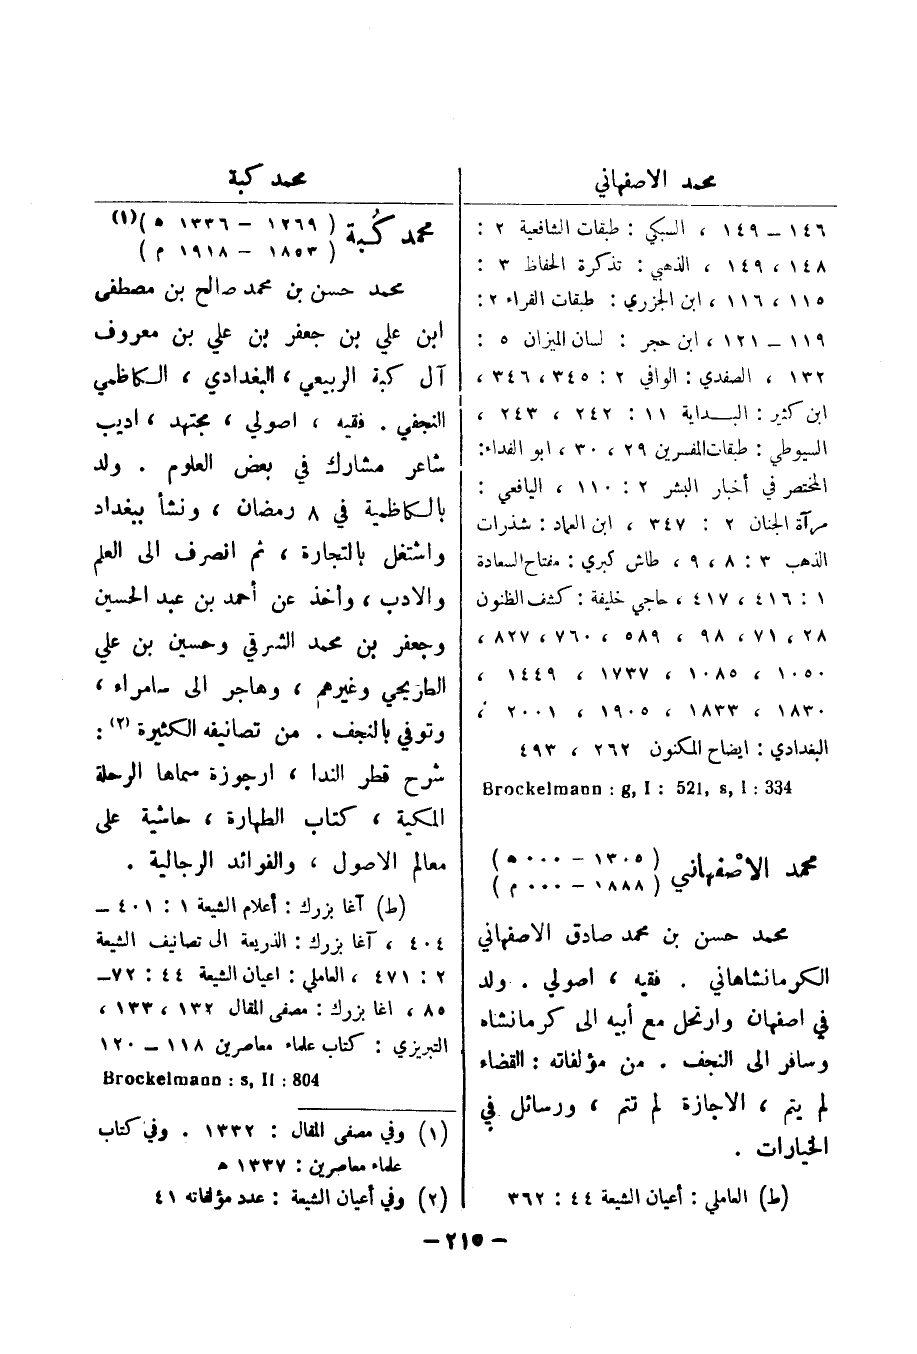 محمد الاصفهاني
١٤٦ – ١٤٩ ، السبكي : طبقات الشافعية ٢ :
١٤٨ ، ١٤٩ ، الذهبي : تذكرة الحفاظ ٣ :
١١٥ ، ١١٦ ، ابن الجزري : طبقات القراء ٢ :
١١٩ – ١٢١ ، ابن حجر : لسان الميزان ٥ :
١٣٢ ، الصفدي : الوافي ٢ : ٣٤٥ ، ٣٤٦ ،
ابن كثير : البــداية ١١ : ٢٤٢ ، ٢٤٣ ،
السيوطي : طبقات المفسرين ٢٩ ، ٣٠ ، ابو الفداء :
المختصر في أخبار البشر ٢ : ١١٠ ، اليافعي :
مرآة الجنان ٢ : ٣٤٧ ، ابن العماد : شذرات
الذهب ٣ : ٨ ، ٩ ، طاش كبري : مفتاح السعادة
١ : ٤١٦ ، ٤١٧ ، حاجي خليفة : كشف الظنون
٢٨ ، ٧١ ، ٩٨ ، ٥٨٩ ، ٧٦٠ ، ٨٢٧ ،
١٠٥٠ ، ١٠٨٥ ، ١٧٣٧ ، ١٤٤٩ ،
١٨٣٠ ، ١٨٣٣ ، ١٩٠٥ ، ٢٠٠١ ،
البغدادي : ايضاح المكنون ٢٦٢ ، ٤٩٣
Brockelmann : g, I : 521, s, I : 334
محمد الاصْفهاني ( ١٣٠٥ – ٠٠٠ ه )
( ١٨٨٨ – ٠٠٠ م )
محمد حسن بن محمد صادق الاصفهاني
الكرمانشاهاني . فقيه ، اصولي . ولد
في اصفهان وارتحل مع أبيه الى كرمانشاه
وسافر الى النجف . من مؤلفاته : القضاء
لم يتم ، الاجازة لم تتم ، ورسائل في
الخيارات .
(ط) العاملي : أعيان الشيعة ٤٤ : ٣٦٢
محمد كبة
محمد كُبة ( ١٢٦٩ – ١٣٣٦ ه )(١)
( ١٨٥٣ – ١٩١٨ م )
محمد حسن بن محمد صالح بن مصطفى
ابن علي بن جعفر بن علي بن معروف
آل كبة الربيعي ، البغدادي ، الكاظمي
النجفي . فقيه ، اصولي ، مجتهد ، اديب
شاعر مشارك في بعض العلوم . ولد
بالكاظمية في ٨ رمضان ، ونشأ ببغداد
واشتغل بالتجارة ، ثم انصرف الى العلم
والادب ، وأخذ عن أحمد بن عبد الحسين
وجعفر بن محمد الشرقي وحسين بن علي
الطريحي وغيرهم ، وهاجر الى سامراء ،
وتوفي بالنجف . من تصانيفه الكثيرة (٢) :
شرح قطر الندا ، ارجوزة سماها الرحلة
المكية ، كتاب الطهارة ، حاشية على
معالم الاصول ، والفوائد الرجالية .
(ط) آغا بزرك : أعلام الشيعة ١ : ٤٠١ –
٤٠٤ ، آغا بزرك : الذريعة الى تصانيف الشيعة
٢ : ٤٧١ ، العاملي : اعيان الشيعة ٤٤ : ٧٢–
٨٥ ، اغا بزرك : مصفى المقال ١٣٢ ، ١٣٣ ،
التبريزي : كتاب علماء معاصرين ١١٨ – ١٢٠
Brockelmann : s, II : 804
(١) وفي مصفى المقال : ١٣٣٢ . وفي كتاب
علماء معاصرين : ١٣٣٧ ه
(٢) وفي أعيان الشيعة : عدد مؤلفاته ٤١
– ٢١٥ –